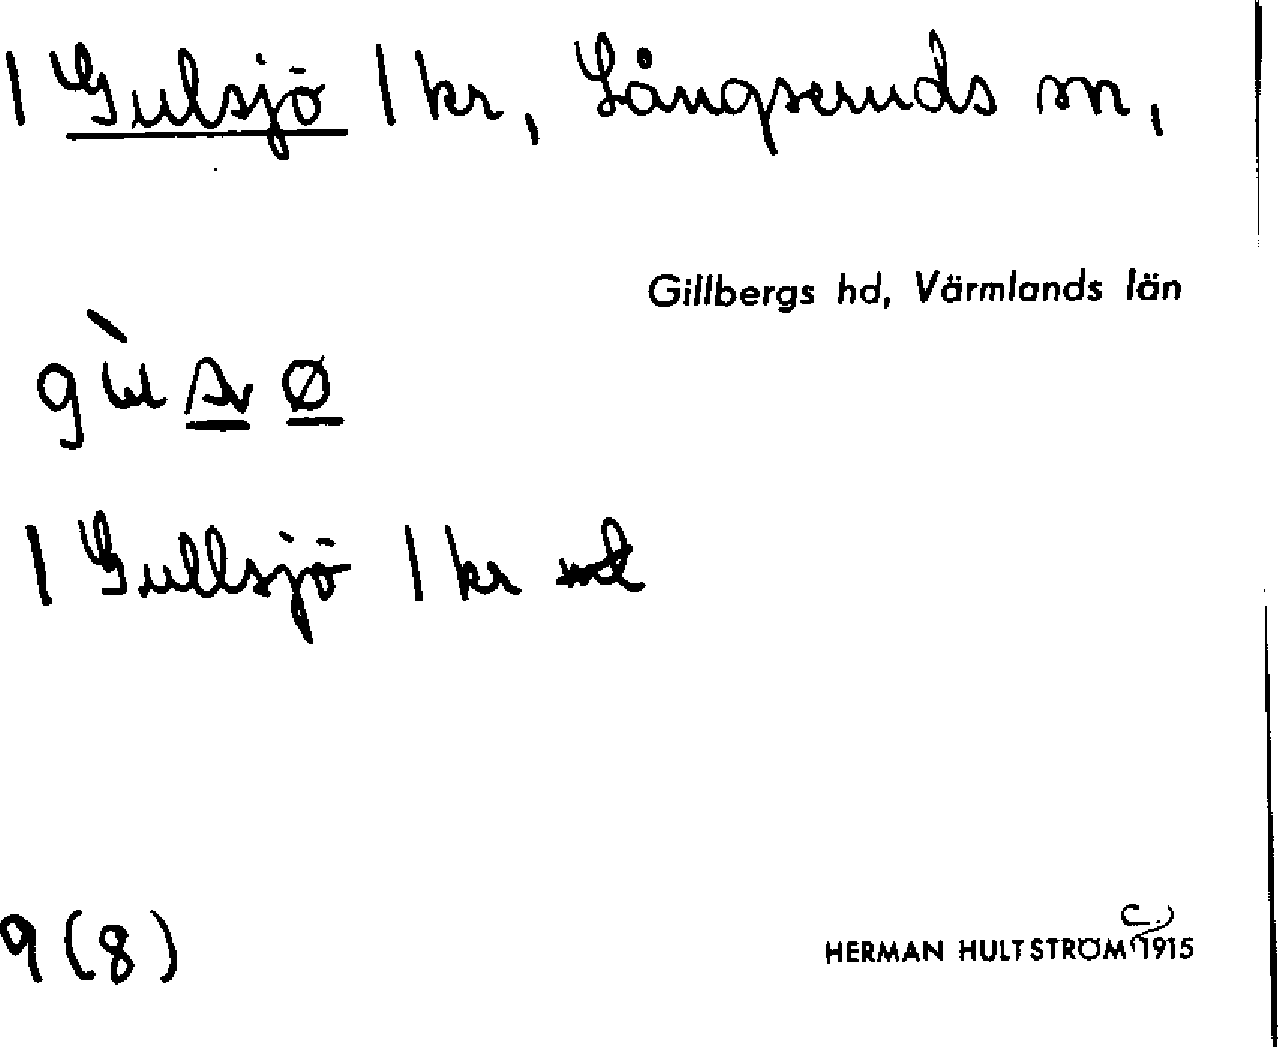 1 Gulsjö 1 kr, Långseruds sn,
Gillbergs hd, Värmlands län
1 Gullsjö 1 kr
9 (8)
HERMAN HULTSTRÖM 1915